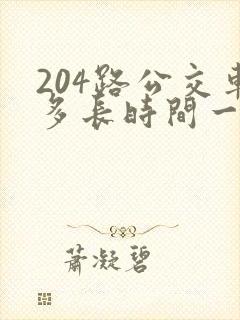 204路公交車
多長時間一
蕭凝碧